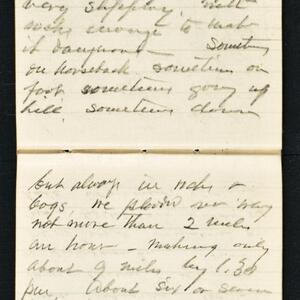 very slippery, with
rocks enough to make
it dangerous - Sometimes
on horseback sometimes on
foot sometimes going up
hill sometimes down
but always in rocks &
bogs, we our way
not more than 2 miles
an hour - making only
about 9 miles by 1.30
P.M. About six or seven